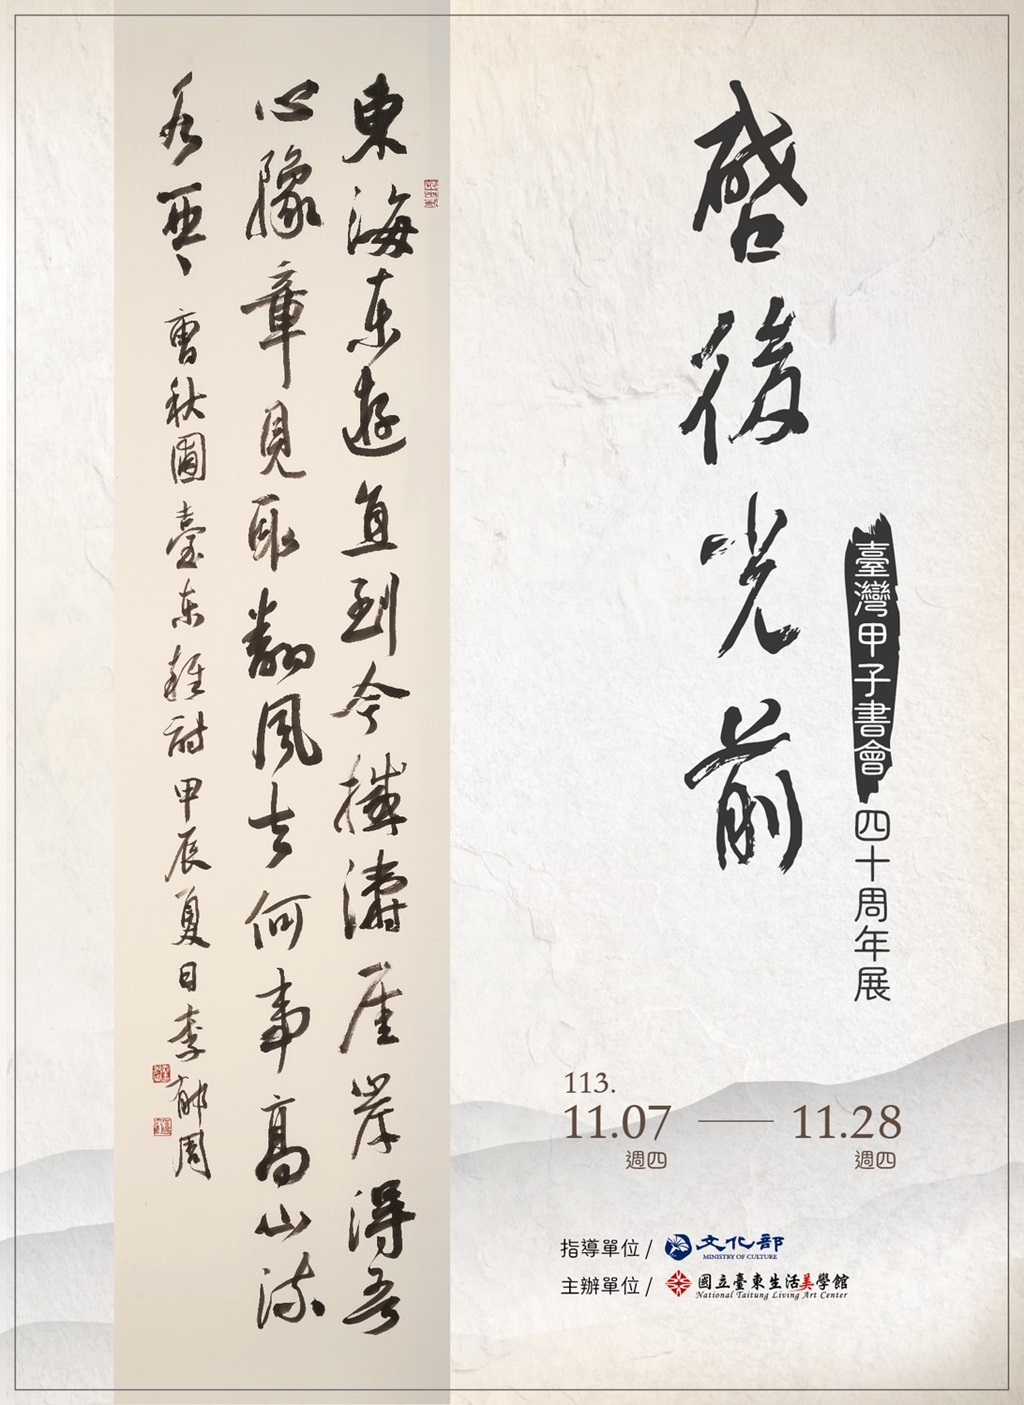 臺灣甲子書會 四十周年展
啓後光前
東海東遊直到今濤崖岸得吾
心豫章見取翻風去何事高山流
曹秋圃臺東雜詩甲辰夏日李郁周
113.
11.07 —— 11.28
週四 週四
指導單位 / 文化部
MINISTRY OF CULTURE
主辦單位 / 國立臺東生活美學館
National Taitung Living Art Center